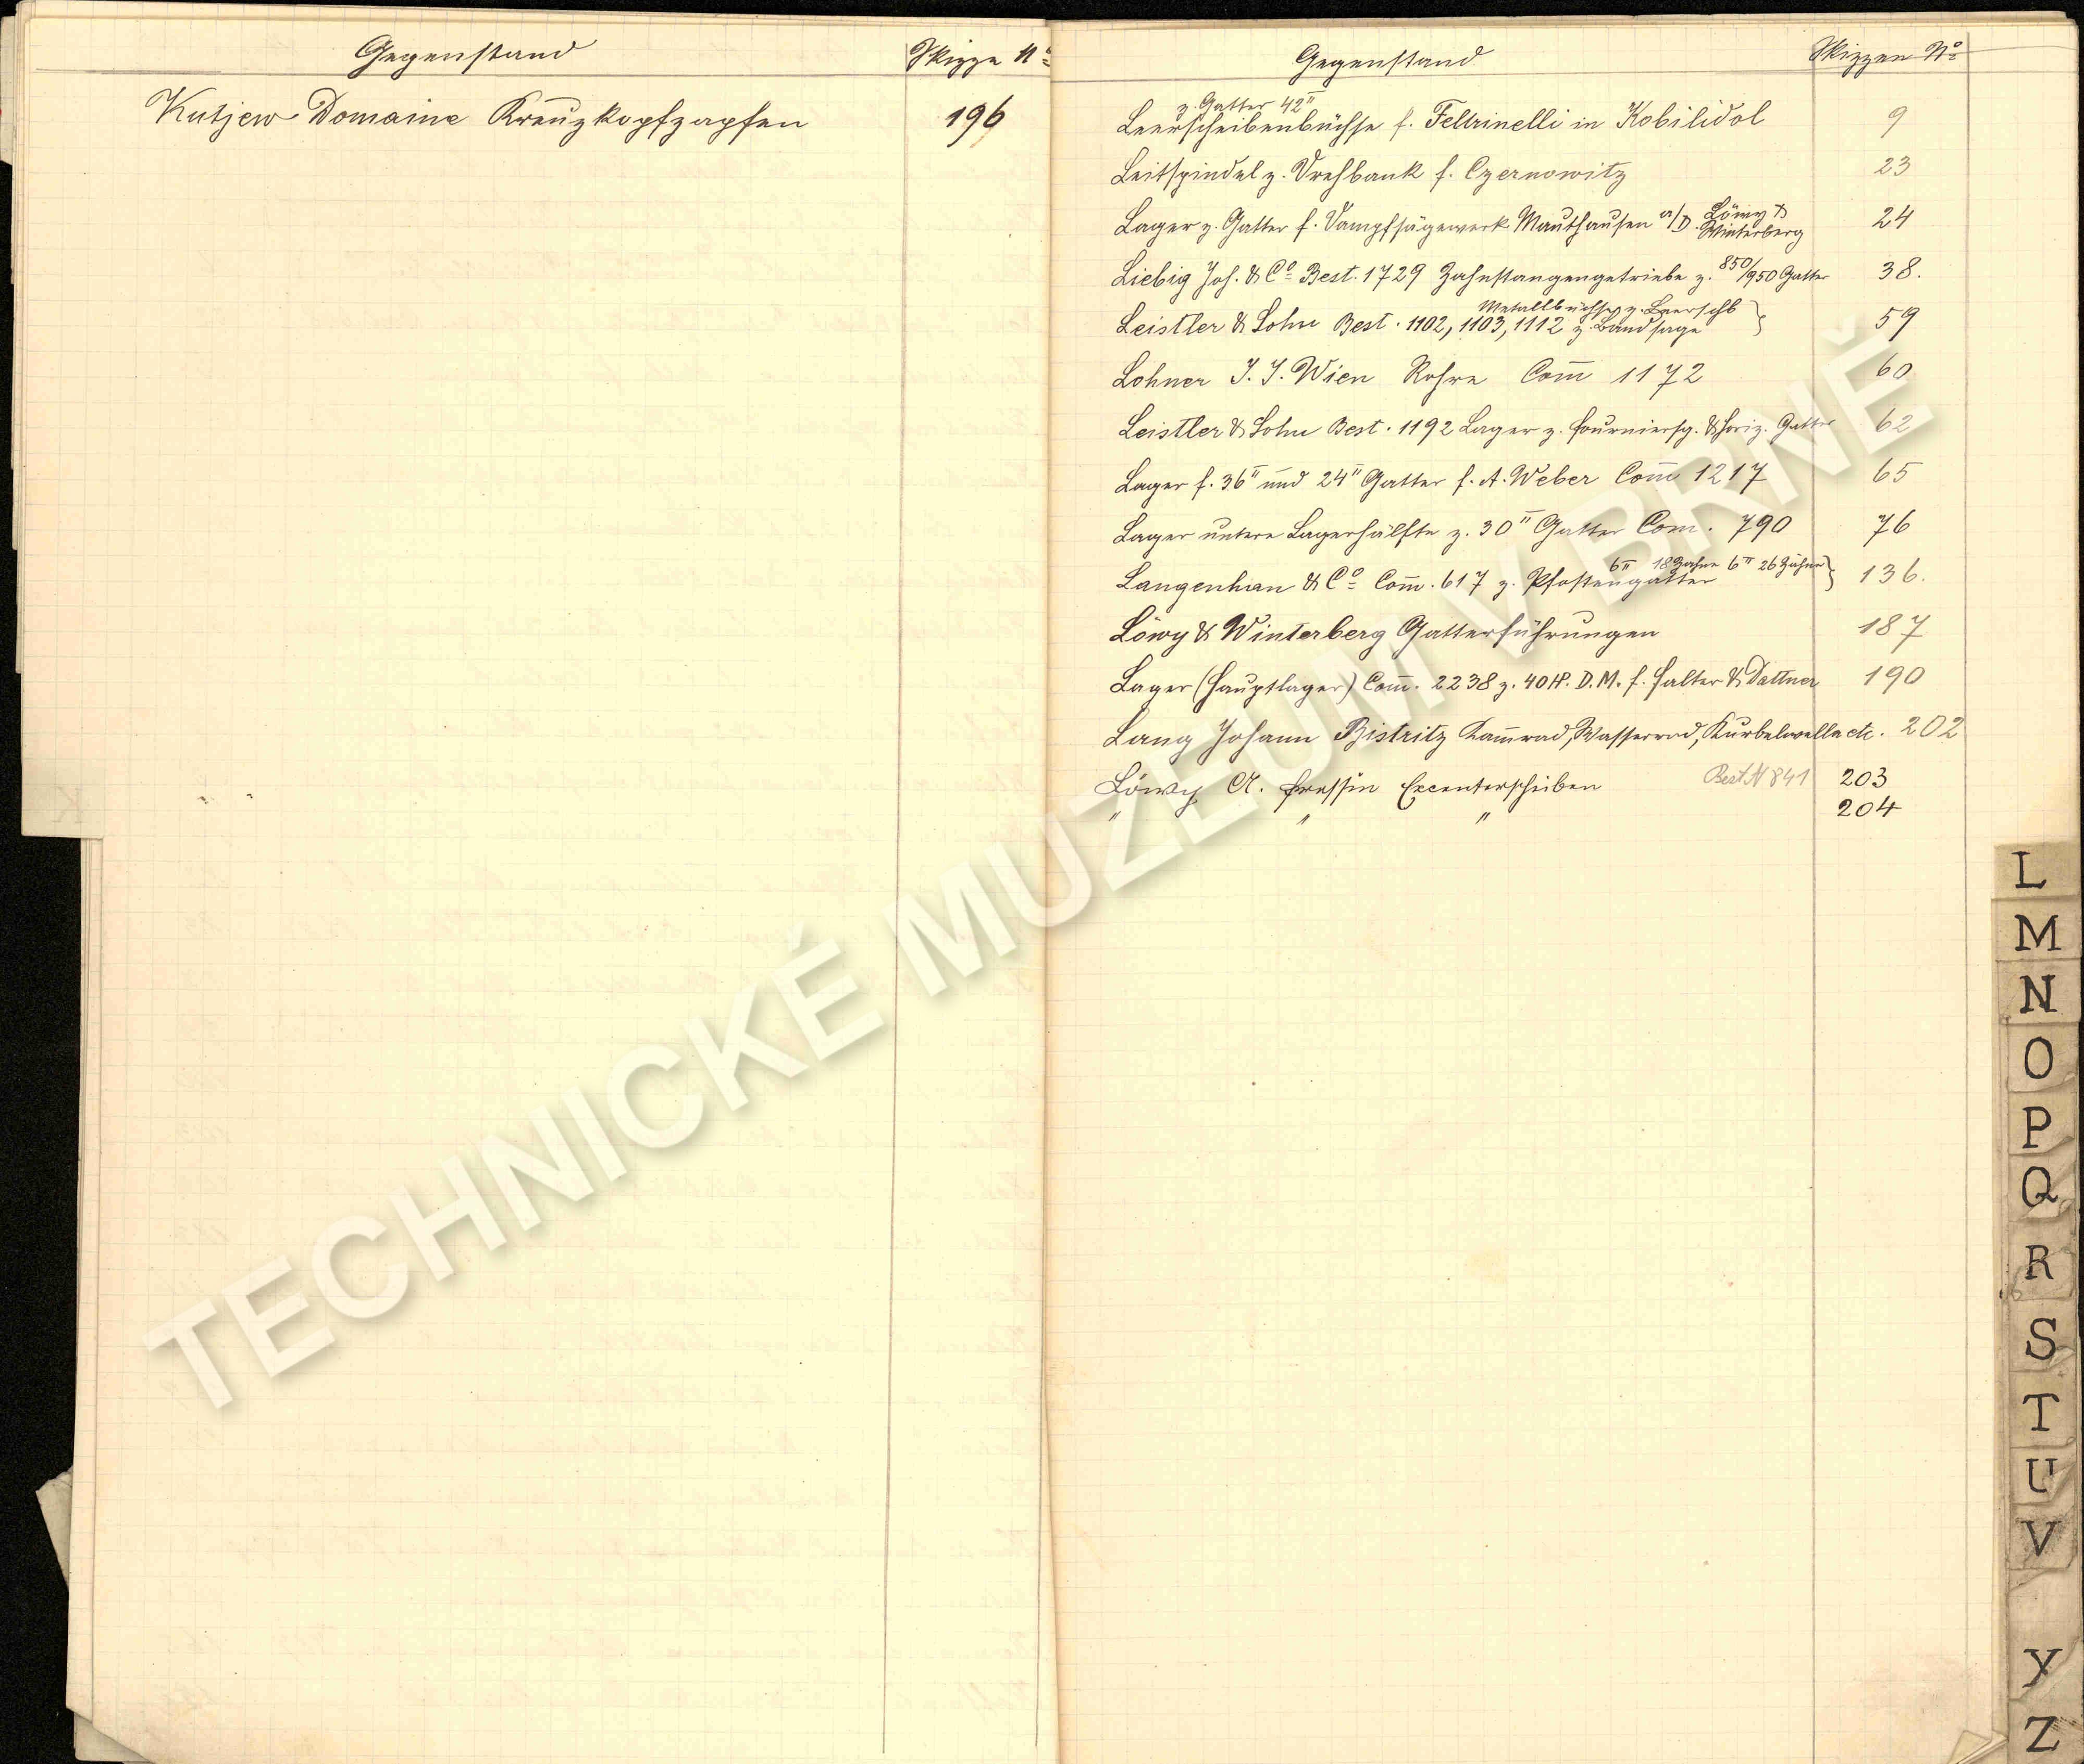 Gegenstand Skizze No
Kutjew Domaine Kreuzkopfzapfen 196
Gegenstand Skizzen No
z. Gatter 42"
Leerscheibenbüchse f. Feltrinelli in Kobilidol 9
Leitspindel z. Drehbank f. Czernowitz 23
Lager z. Gatter f. Dampfsägewerk Mauthausen a/D. Löwy & Winterberg 24
Liebig Joh. & Co Best. 1729 Zahnstangengetriebe z. 850/950 Gatter 38.
Metallbüchse z. Leerschb
Leistler & Sohn Best. 1102, 1103, 1112 z. Bandsäge 59
Lohner J. J. Wien Rohre Com̄ 1172 60
Leistler & Sohn Best. 1192 Lager z. Fourniersg. & horiz. Gatter 62
Lager f. 36" und 24" Gatter f. A. Weber Com̄ 1217 65
Lager untere Lagerhälfte z. 30" Gatter Com. 790 76
6" 18 Zähne 6" 26 Zähne
Langenhan & Co Com̄. 617 z. Pfostengatter 136.
Löwy & Winterberg Gatterführungen 187
Lager (Hauptlager) Com̄. 2238 z. 40 H. D. M. f. Halter & Dattner 190
Lang Johann Bistritz Kam̄rad, Wasserrad, Kurbelwelle etc. 202
Löwy A. Excenterscheiben Best. N 841 203
" " " 204
L
M
N
O
P
Q
R
S
T
U
V
Y
Z
K
TECHNICKÉ MUZEUM V BRNĚ